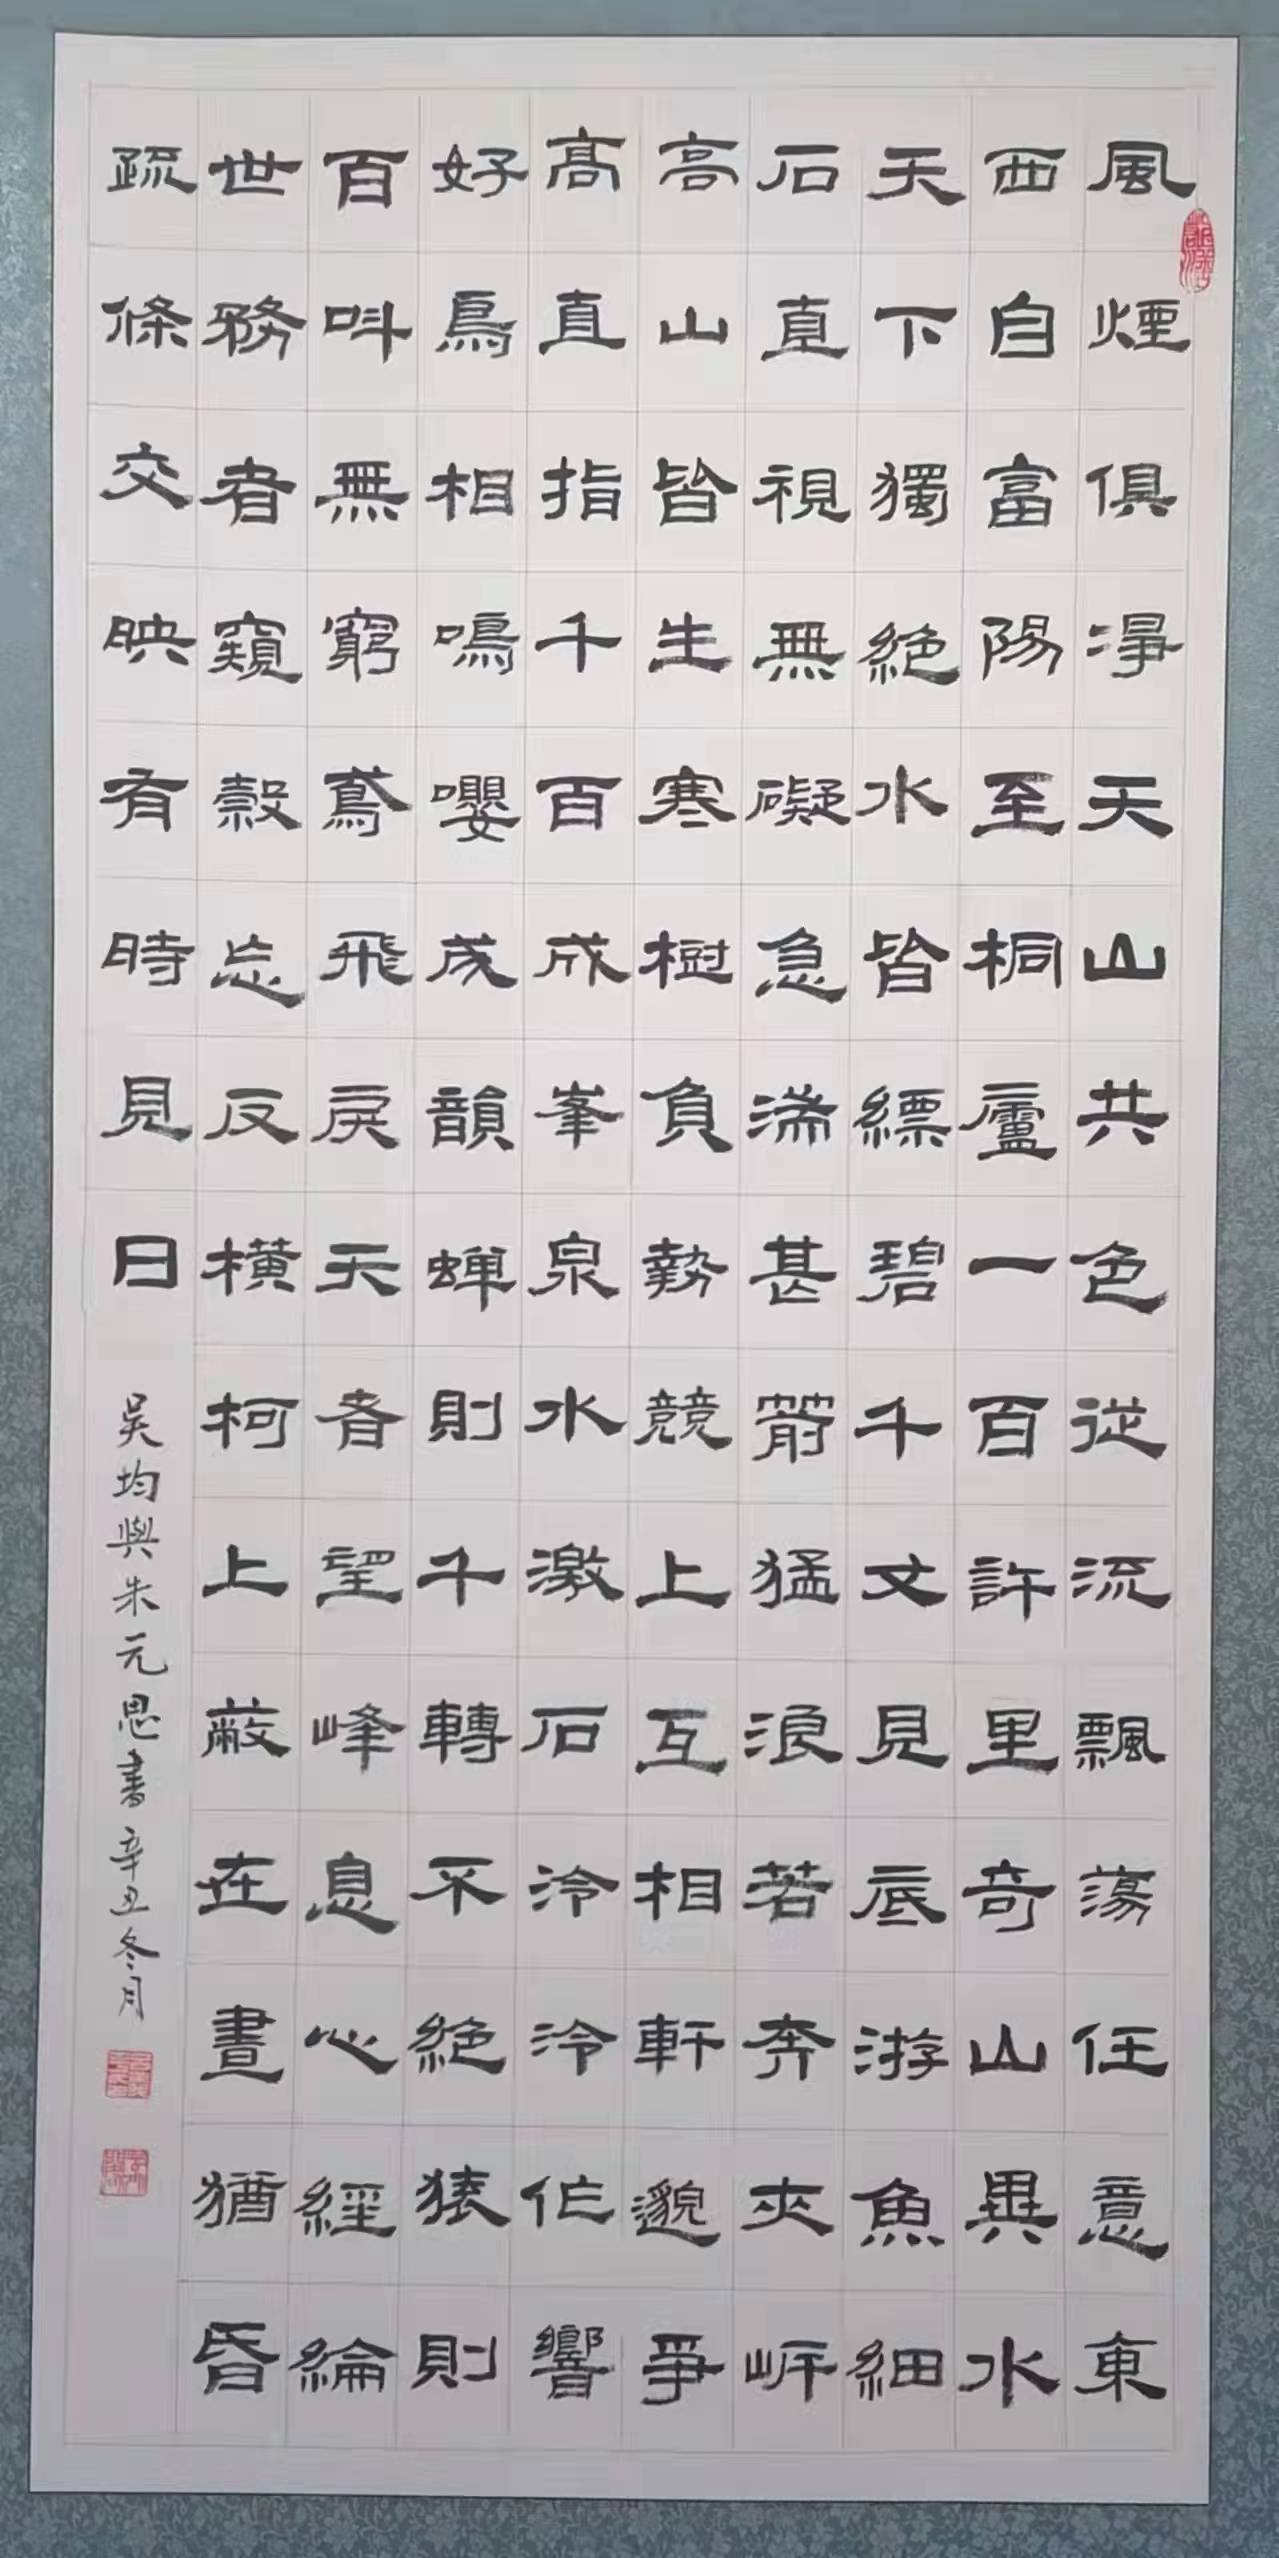 風煙俱淨天山共色從流飄蕩任意東
西自富陽至桐廬一百許里奇山異水
天下獨絕水皆縹碧千丈見底游魚細
石直視無礙急湍甚箭猛浪若奔夾岸
高山皆生寒樹負勢競上互相軒邈爭
高直指千百成峯泉水激石泠泠作響
好鳥相鳴嚶成韻蝉則千轉不絕猿則
百呌無窮鳶飛戾天者望峰息心經綸
世務者窺穀忘反橫柯上蔽在晝猶昏
疏條交映有時見日
吳均與朱元思書辛丑冬月